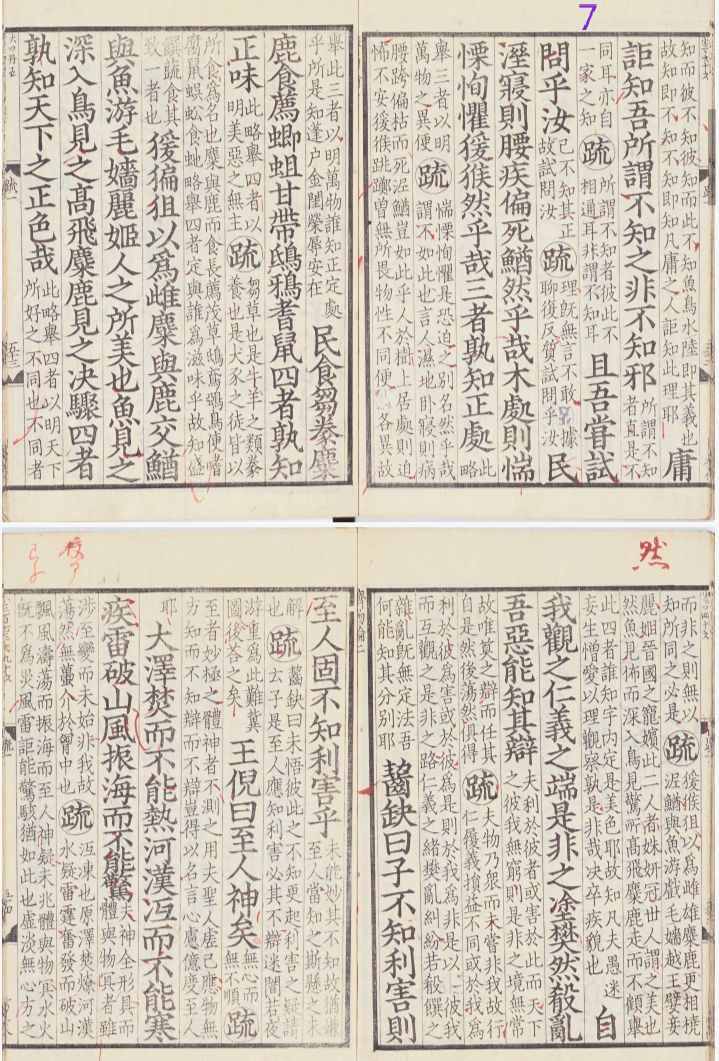 知而彼不知彼知而此不知魚鳥水陸即其義也故知即不知不知即知凡庸之人詎知此理耶 庸
詎知吾所謂不知之非不知邪 所謂不知者直是不
同耳亦自一家之知 疏 所謂不知者彼此不相通耳非謂不知耳 且吾嘗試
問乎汝 已不知其正故試問汝 疏 理旣無言不敢據聊復反質試問乎汝 民
溼寢則腰疾偏死鰌然乎哉木處則惴
慄恂懼猨猴然乎哉三者孰知正處 此略
舉三者以明萬物之異便 疏 惴慄恂懼是恐迫之別名然乎哉謂不如此也言人濕地臥寢則病
腰跨偏枯而死泥鰌豈如此乎人於樹上居處則迫怖不安猨猴跳躑曾無所畏物性不同便各異故
舉此三者以明萬物誰知正定處乎所是知蓬户金閨榮辱安在 民食芻豢麋
鹿食薦蝍蛆甘帶鴟鴉耆鼠四者孰知
正味 此略舉四者以明美惡之無主 疏 芻草也是牛羊之類豢養也是犬豕之徒皆以
所食爲名也麋與鹿而食長薦茂草鴟鳶鵶鳥便嗜腐鼠蜈蚣食虵略舉四者定與誰爲滋味乎故知盛
饌蔬食其致一者也 猨猵狙以爲雌麋與鹿交鰌
與魚游毛嬙麗姬人之所美也魚見之
深入鳥見之高飛麋鹿見之决驟四者
孰知天下之正色哉 此略舉四者以明天下所好之不同也不同者
而非之則無以知所同之必是 疏 猨猴狙以爲雌雄麋鹿更相接泥鰌與魚游戲毛嬙越王嬖妾
麗姬晉國之寵嬪此二人者姝姸冠世人謂之美也然魚見怖而深入鳥見驚而高飛麋鹿走而不顧舉
此四者誰知宇内定是美色耶故知凡夫愚迷妄生憎愛以理觀察孰是非哉决卒疾貌也 自
我觀之仁義之端是非之塗樊然殽亂
吾惡能知其辯 夫利於彼者或害於此而天下之彼我無窮則是非之境無常
故唯莫之辯而任其自是然後蕩然俱得 疏 夫物乃衆而未嘗非我故行仁履義損益不同或於我爲
利於彼爲害或於彼爲是則於我爲非是以彼我而互觀之是非之路仁義之緒樊亂糾紛若殽饌之
雜亂旣無定法吾何能知其分別耶 齧缺曰子不知利害則
至人固不知利害乎 未能妙其不知故猶嫌至人當知之斯懸之未
解也 疏 齧缺曰未悟彼此之不知更起利害之疑請云子是至人應知利害必其不辯迷闇若夜
游重爲此難冀圖後荅之矣 王倪曰至人神矣 無心而無不順 疏
至者妙極之體神者不測之用夫聖人虛已應物無方知而不知辯而不辯豈得以名言心慮億度至人
耶 大澤焚而不能熱河漢沍而不能寒
疾雷破山風振海而不能驚 夫神全形具而體與物冥者雖
涉至變而未始非我故蕩然無蠆介於胷中也 疏 沍凍也原澤焚燎河漢冰凝雷霆奮發而破山
飄風濤蕩而振海而至人神凝未兆體與物冥水火旣不爲災風雷詎能驚駭猶如此也虛淡無心方之
7
然